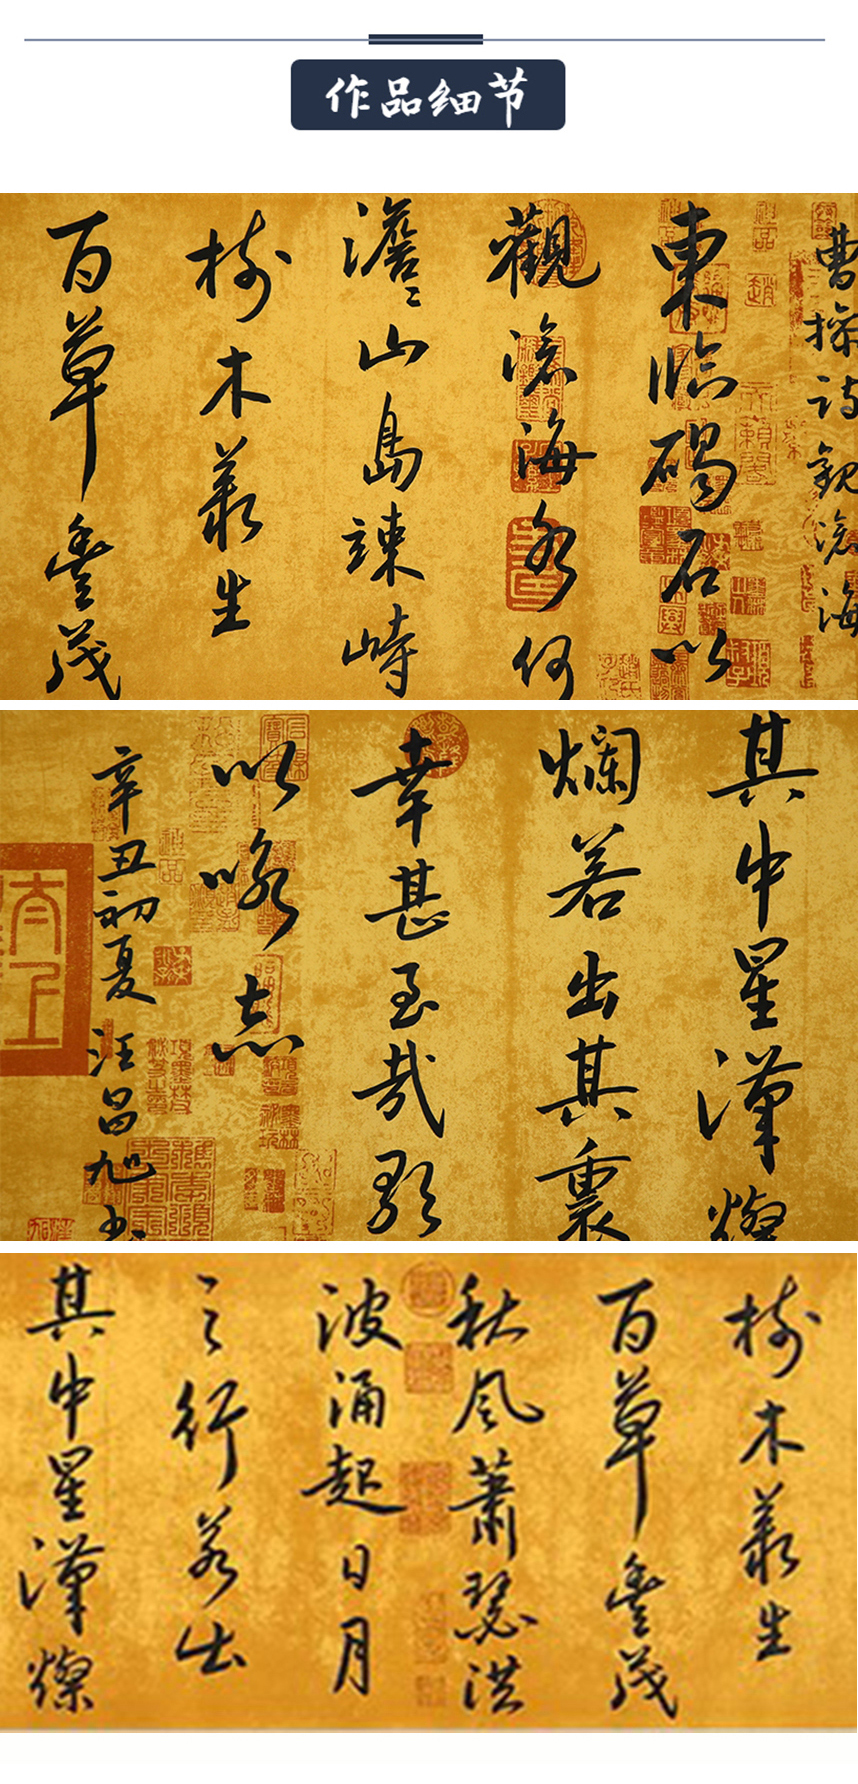 作品细节
曹操诗观沧海
東临碣石以
觀滄海水何
澹〻山島竦峙
树木叢生
百草豊茂
其中星漢燦
爛若出其裏
幸甚至哉歌
以咏志
辛丑初夏汪昌旭书
树木叢生
百草豊茂
秋风萧瑟洪
波涌起日月
之行若出
其中星漢燦